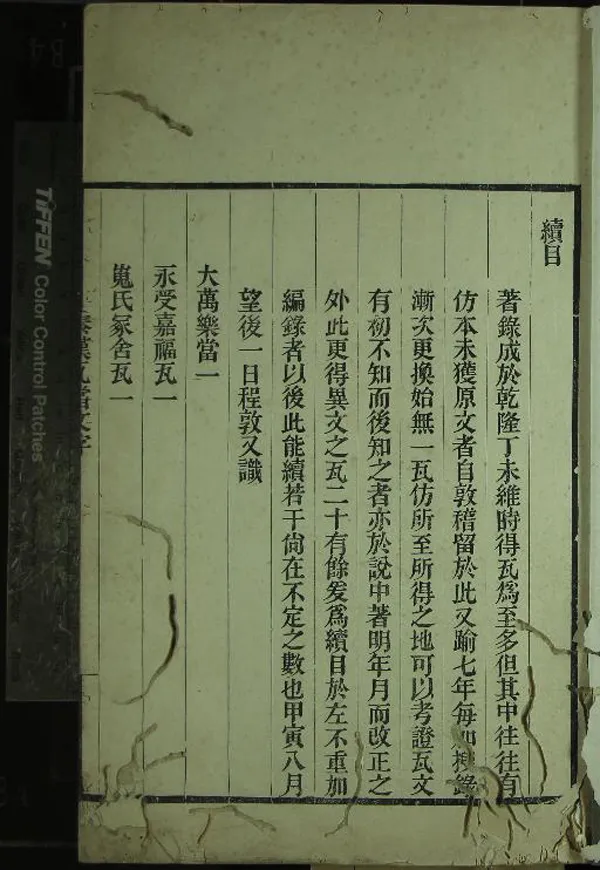 續目
著錄成於乾隆丁未維時得瓦爲至多但其中往往有
仿本未獲原文者自敦稽留於此又踰七年每加搜錄
漸次更換始無一瓦仿所至所得之地可以考證瓦文
有初不知而後知之者亦於說中著明年月而改正之
外此更得異文之瓦二十有餘爰爲續目於左不重加
編錄者以後此能續若干尙在不定之數也甲寅八月
望後一日程敦又識
大萬樂當一
永受嘉福瓦一
嵬氏冢舍瓦一
秦漢瓦當文字
TIFFEN Color Control Patches